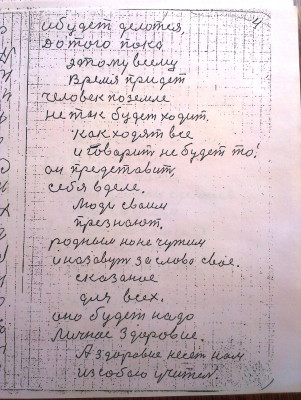 4
и будет делотся,
до того пока
этому всему
время придет
человек по земле
не так будет ходит.
как ходят все
и говарит не будет то!
он представит,
себя в деле.
Люди своим
презнают.
родным но не чужим
и назавут за слово свае.
сказаное
для всех.
оно будет надо
Личнае Здоровие.
А здоровие несет нам
из собою учител